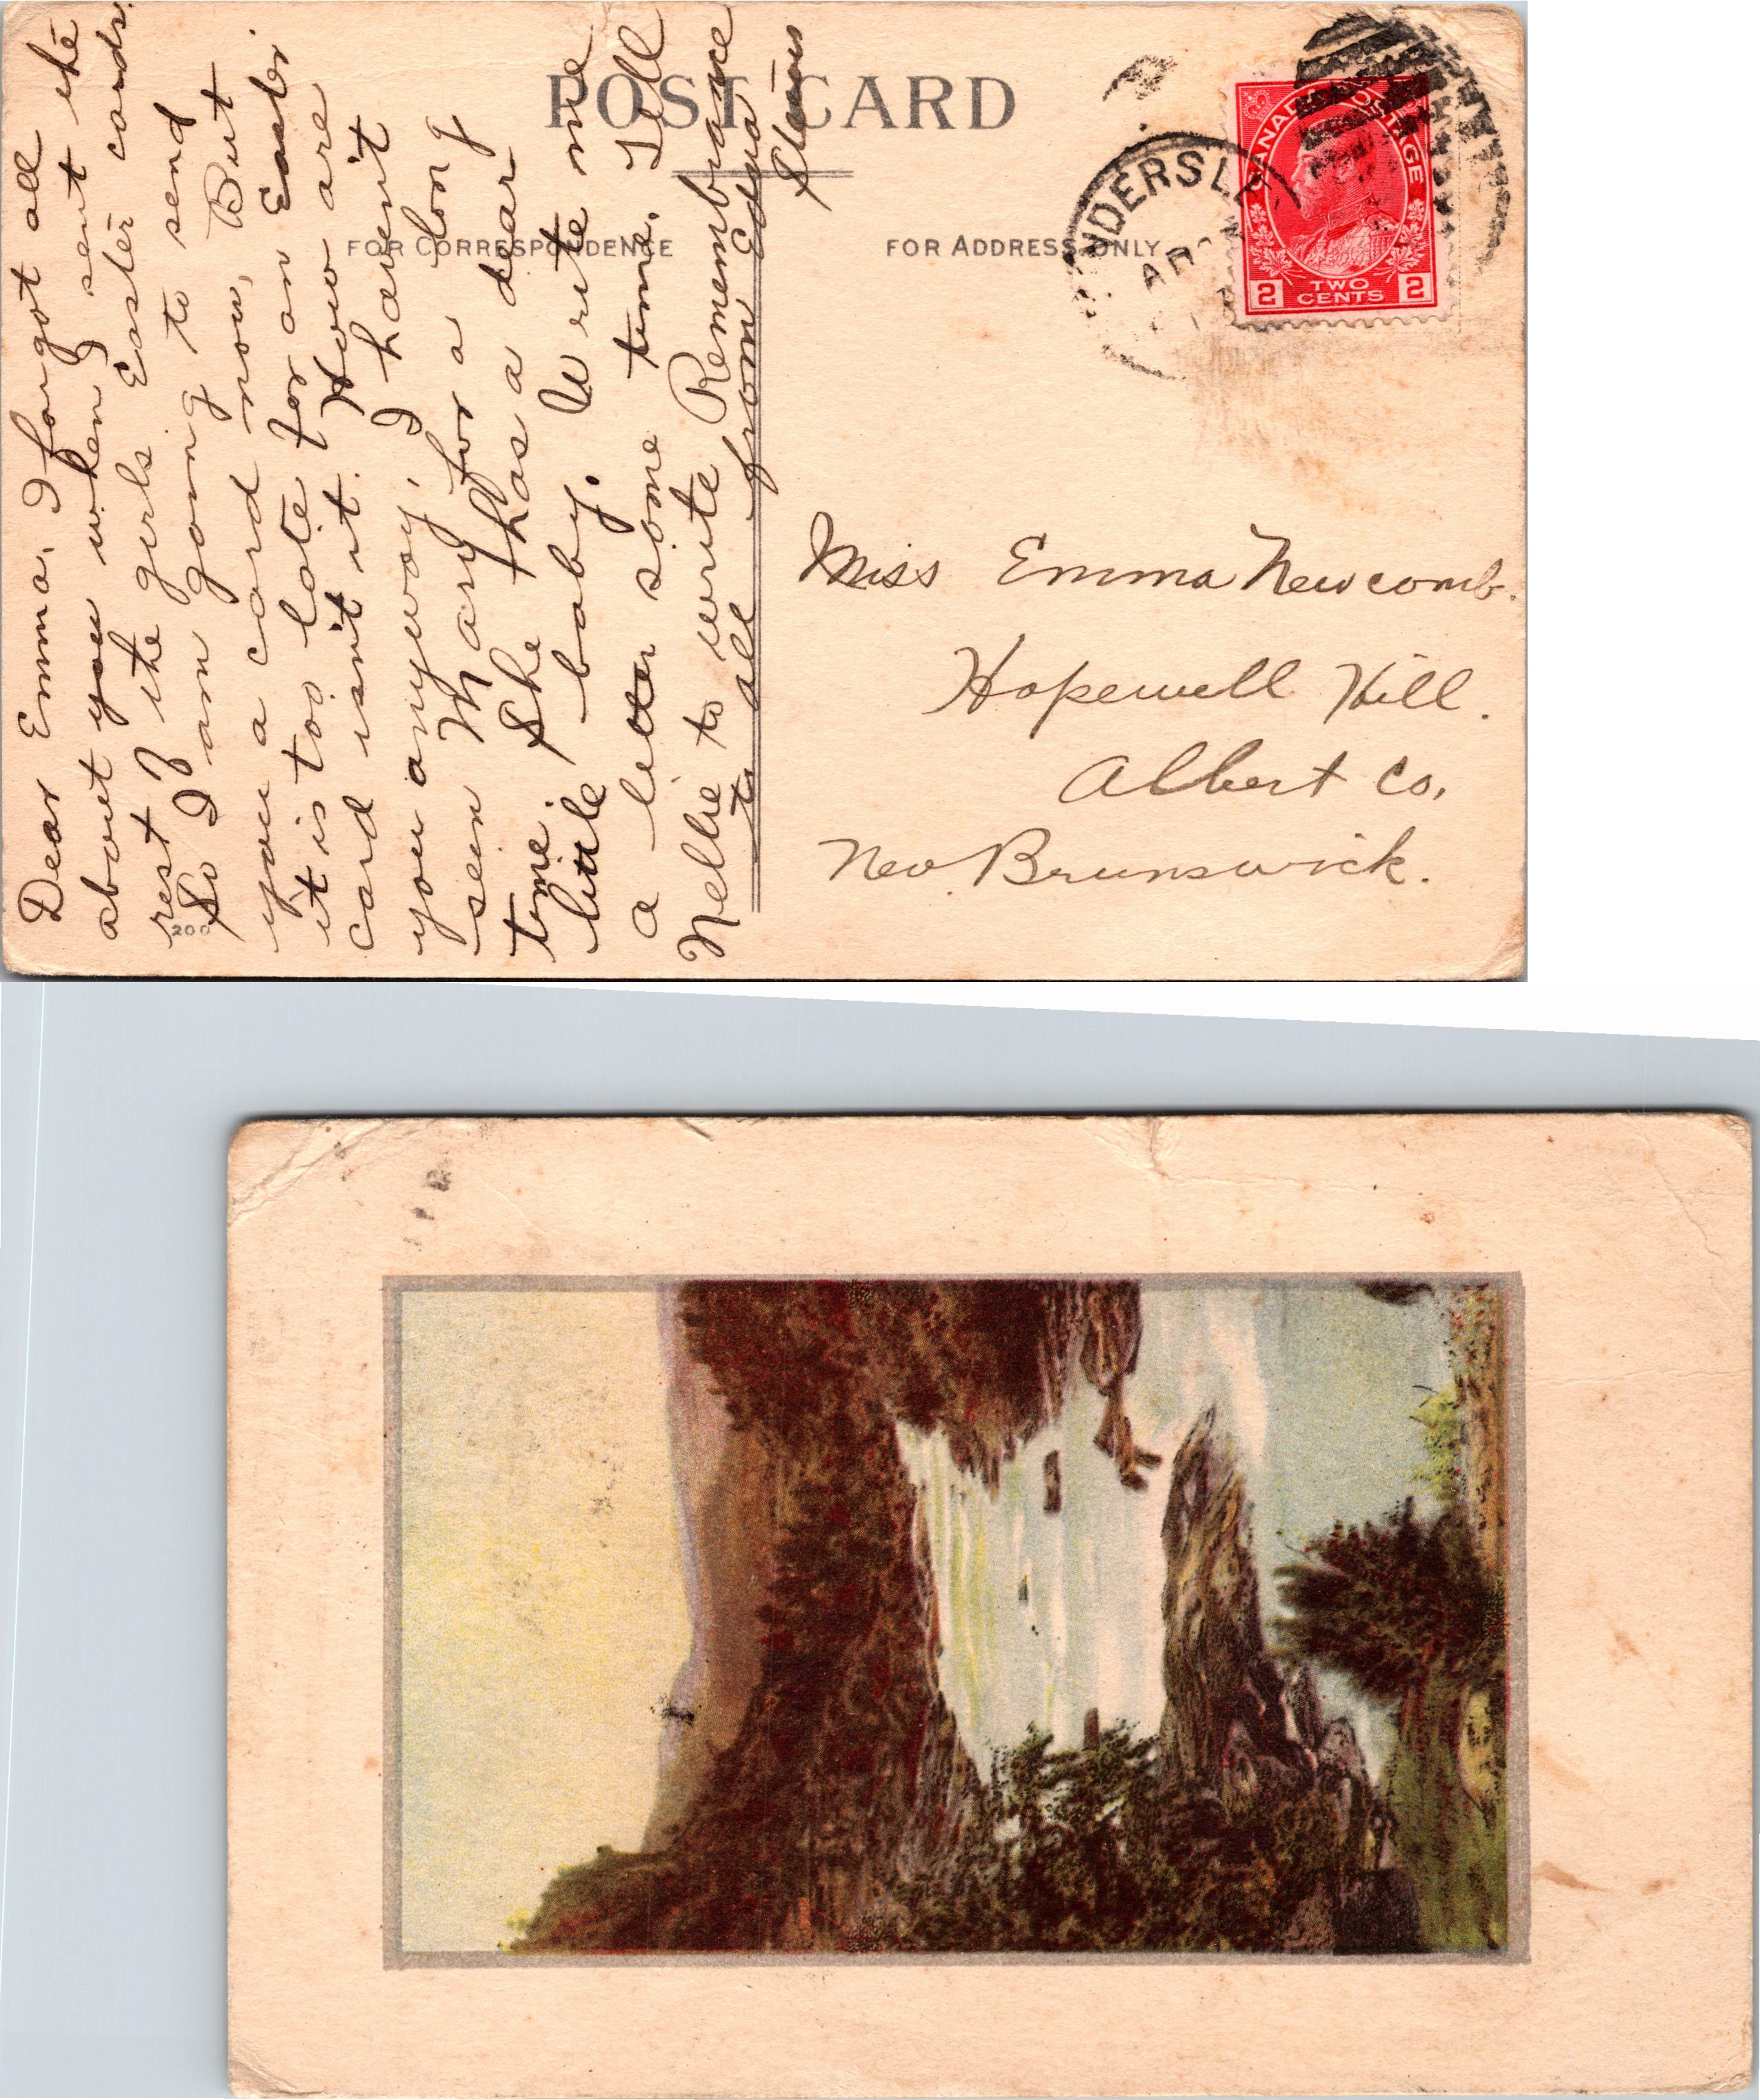 POST CARD
FOR CORRESPONDENCE
FOR ADDRESS ONLY
NDERSLE
AR
CANADA POSTAGE
2 TWO CENTS 2
Dear Emma, I forgot all
about you when I sent the
rest of the girls Easter cards.
So I am going to send
you a card now, But
it is too late for an Easter
card isn't it. How are
you anyway, I haven't
seen Mary for a long
time. She has a dear
little baby. Write me
a letter some time. Tell
Nellie to write Remembrance
to all from Edna
200
Miss Emma Newcomb.
Hopewell Hill.
Albert Co,
New. Brunswick.